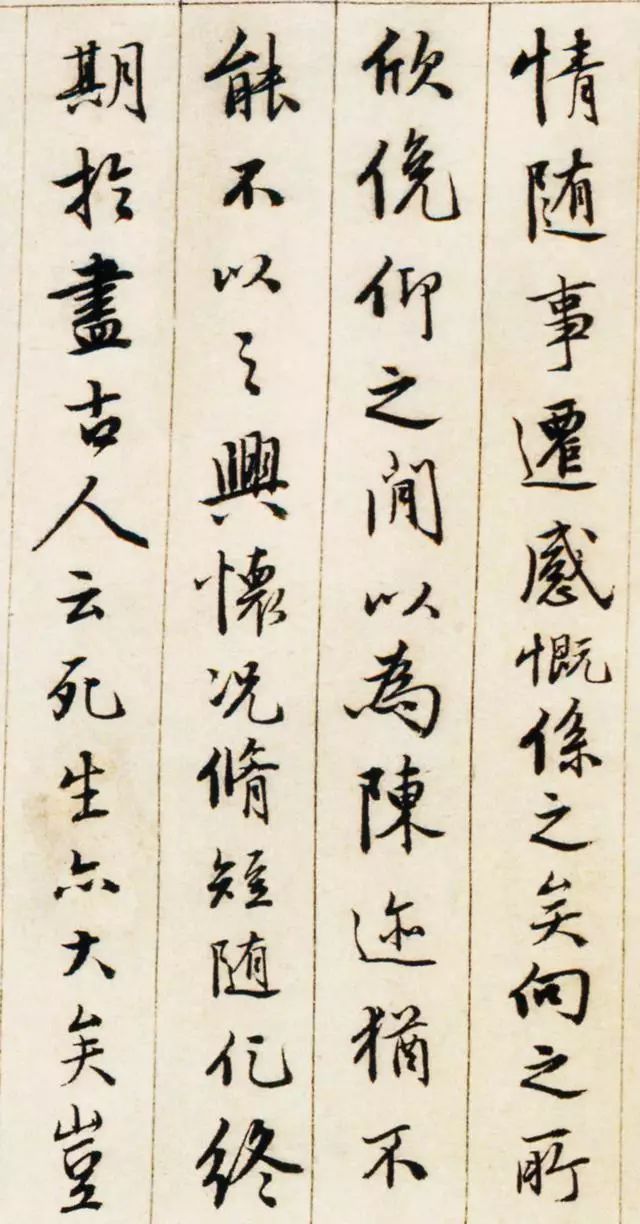 情随事遷感慨係之矣向之所
欣俛仰之間以為陳迹猶不
能不以之興懷況脩短随化終
期於盡古人云死生亦大矣豈